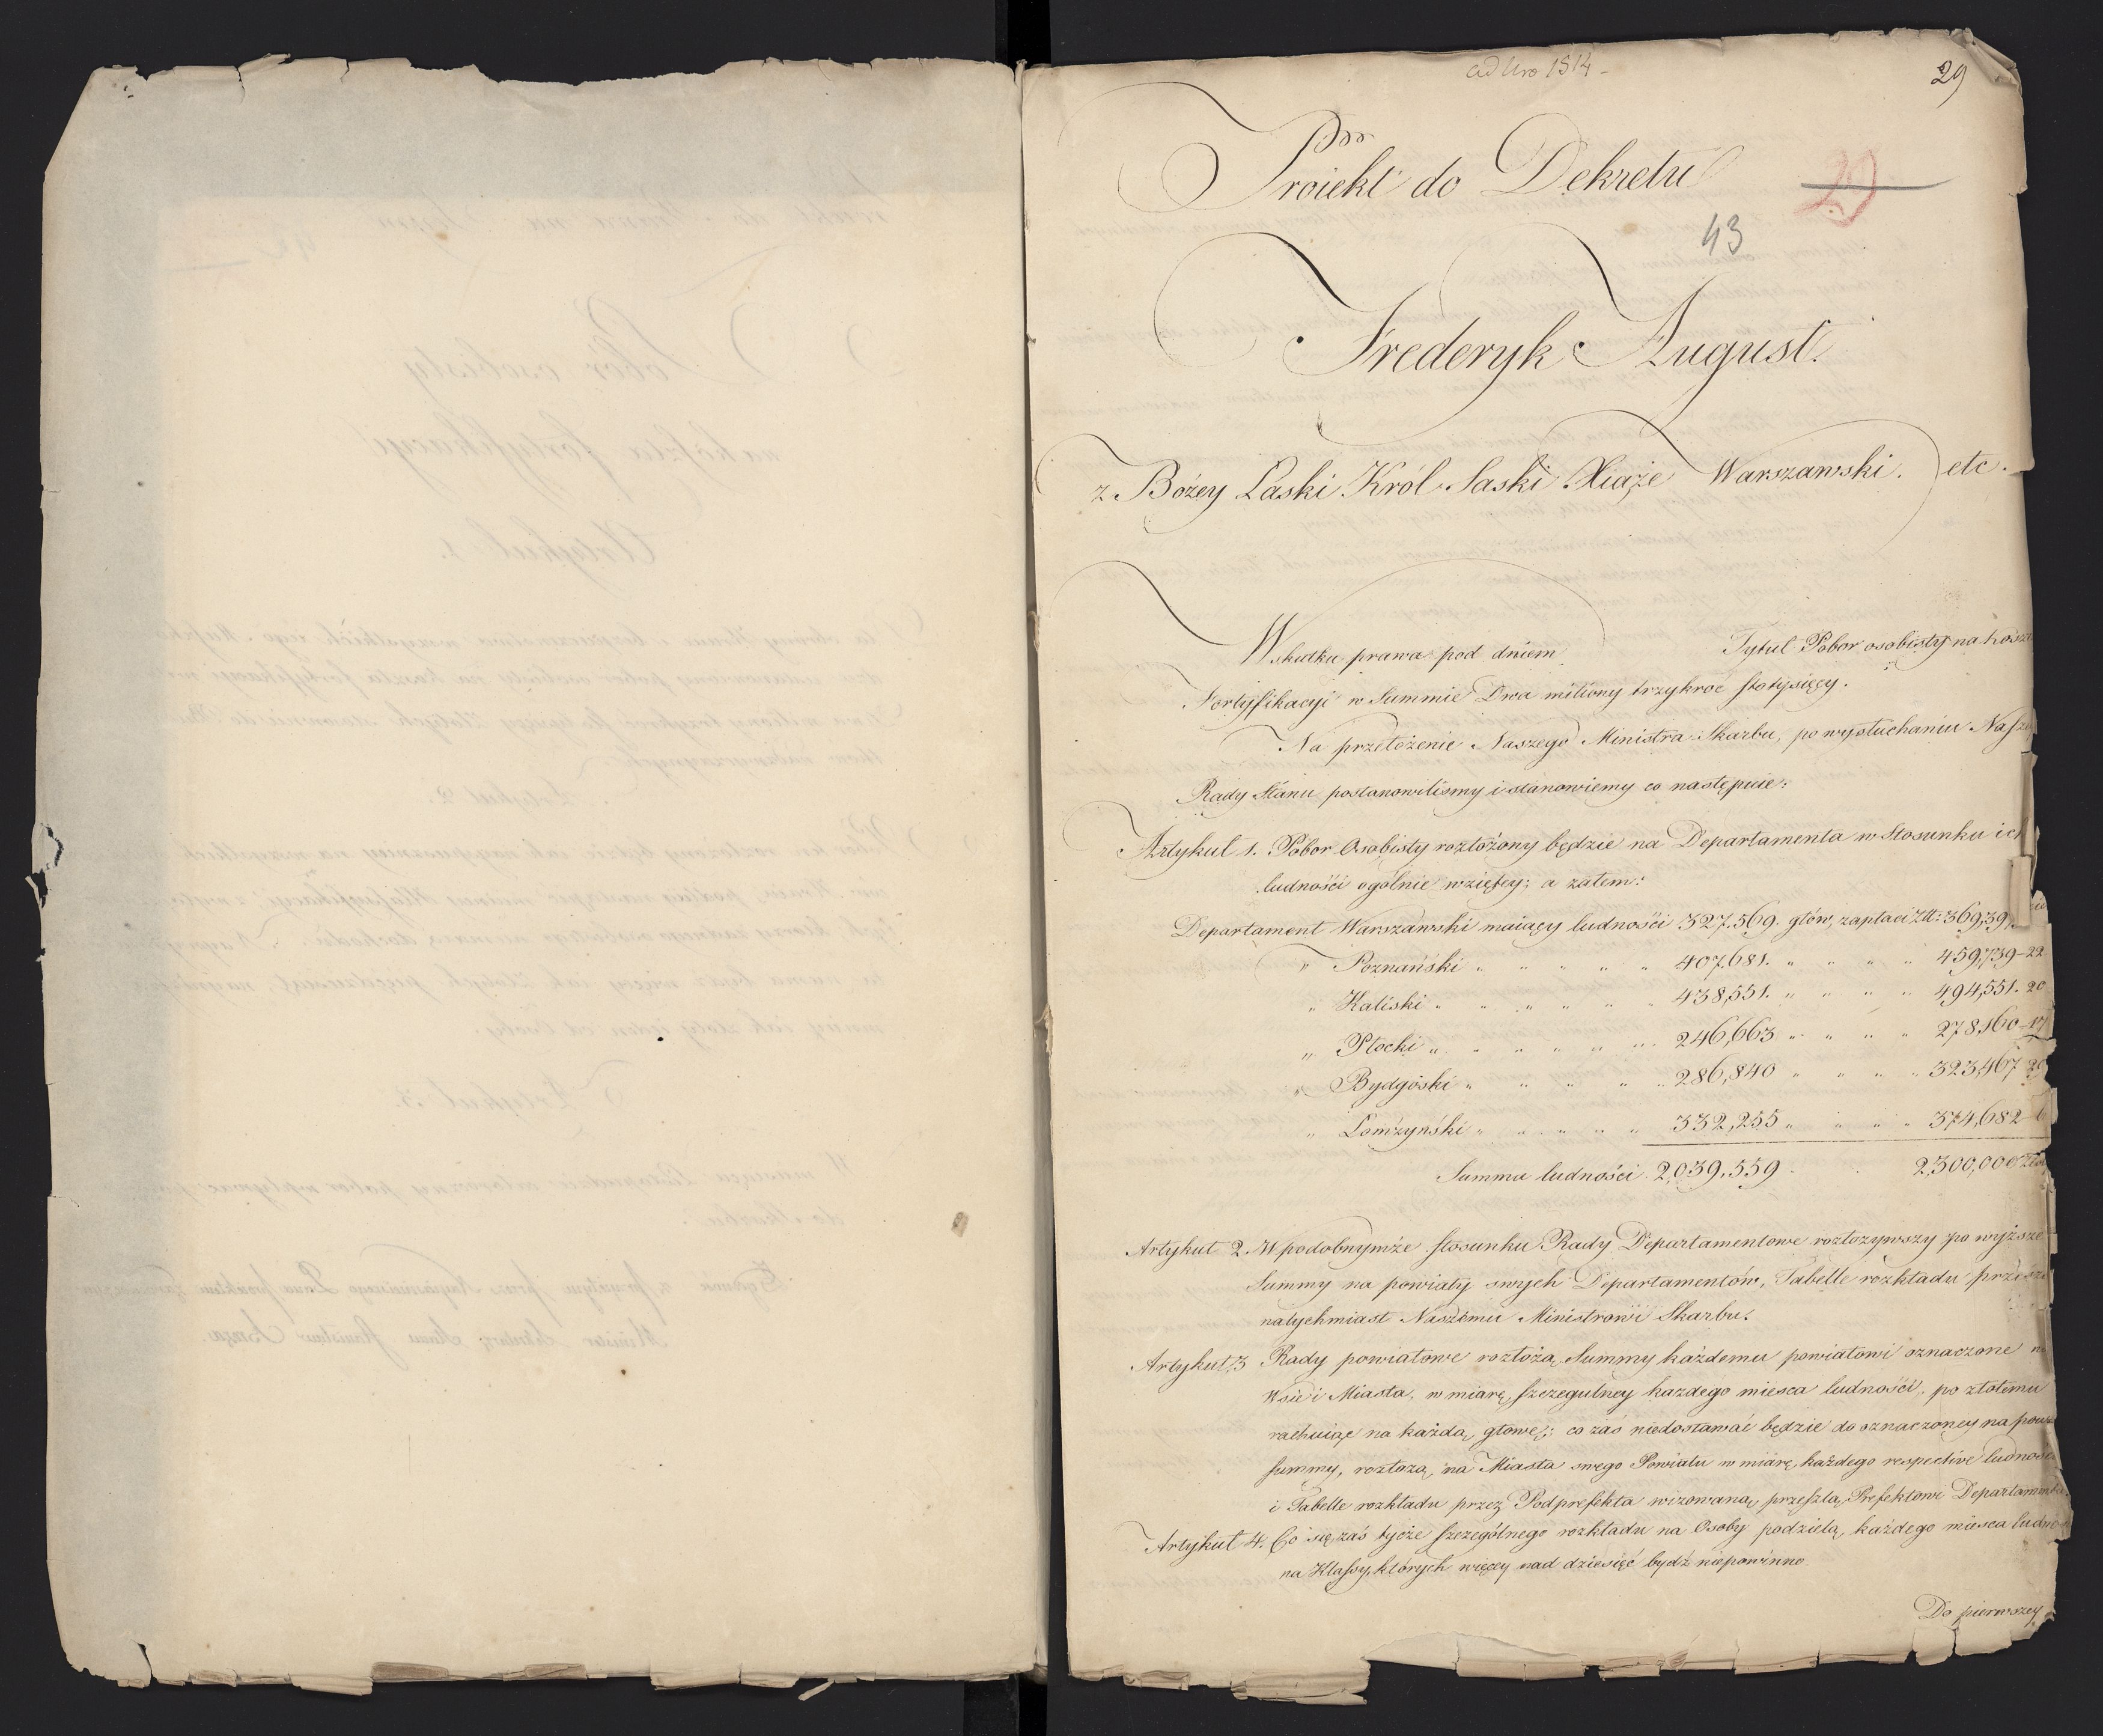 ad Nro 1514
29
Proiekt do Dekretu
29
43
Frederyk August.
z Bożey Łaski Król Saski Xiąże Warszawski. etc.
Wskutku prawa pod dniem Tytuł Pobor osobisty na kosz
Fortyfikacyi w Summie Dwa miliony trzykroć stotysięcy.
Na przełożenie Naszego Ministra Skarbu, po wysłuchaniu Nasze
Rady Stanu postanowilismy i stanowiemy co następuie:
Artykuł 1. Pobor Osobisty rozłożony będzie na Departamenta w Stosunku ich
ludności ogólnie wziętey; a zatem:
Departament Warszawski maiący ludności 327,569. głów, zapłaci Złt: 369,39
" Poznański " " " " " 407,681. " " " " 459,739-22
" Kaliski " " " " " " 438,551. " " " " 494,551. 20
" Płocki " " " " " " 246,663 " " " " 278,160-17
" Bydgoski " " " " " 286,840 " " " " 323,467 20
" Łomżyński " " " " " 332,255 " " " " 374,682-6
Summa ludności 2,039,559 - - 2,300,000
Artykuł 2. W podobnymże stosunku Rady Departamentowe rozłożywszy powyższe
Summy na powiaty swych Departamentów, Tabelle rozkładu przeszl
natychmiast Naszemu Ministrowi Skarbu.
Artykuł 3 Rady powiatowe rozłożą Summy każdemu powiatowi oznaczone na
Wsie i Miasta, w miarę szczegulney każdego miesca ludności, po złotemu
rachuiąc na każdą głowę; co zaś niedostawać będzie do oznaczoney na powia
summy, rozłożą na Miasta swego Powiatu w miarę każdego respective ludności
i Tabelle rozkładu przez Podprefekta wizowaną przeszlą Prefektowi Departamentu.
Artykuł 4. Co się zaś tycze szczególnego rozkładu na Osoby podzielą każdego miesca ludno
na Klassy, których więcey nad dziesięć bydź niepowinno
Do pierwszey